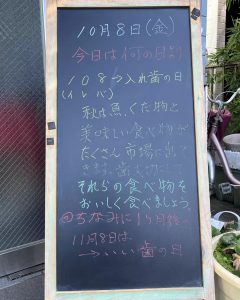 10月8日(金)
今日は何の日より
108→入れ歯の日
(イレバ)
秋は魚、くだ物と
美味しい食べ物が
たくさん市場に出て
きます。歯を大切にして
それらの食べ物を
おいしく食べましょう。
ちなみに1ヶ月後の
11月8日は
→いい歯の日